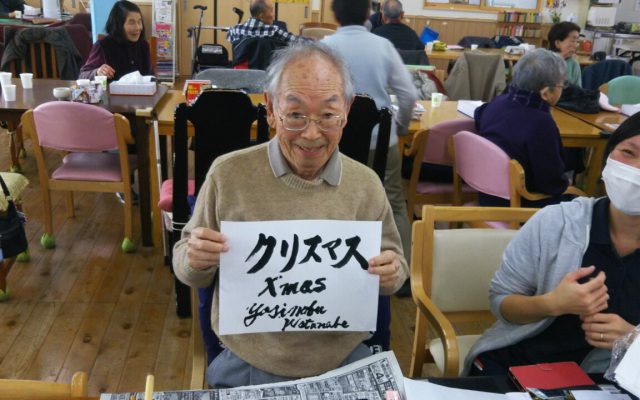 クリスマス
X'mas
Yosinobu
Watanabe